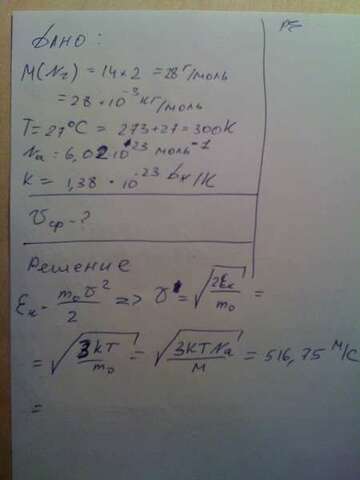 Дано:
M(N₂) = 14×2 = 28 г/моль
= 28·10⁻³ кг/моль
T = 27°C = 273+27 = 300K
Na = 6,02·10²³ моль⁻¹
K = 1,38·10⁻²³ Дж/K
υср - ?
Решение
Eк = m₀υ²/2 => υ = √(2Eк/m₀) =
= √(3KT/m₀) = √(3KTNa/M) = 516,75 м/с
=